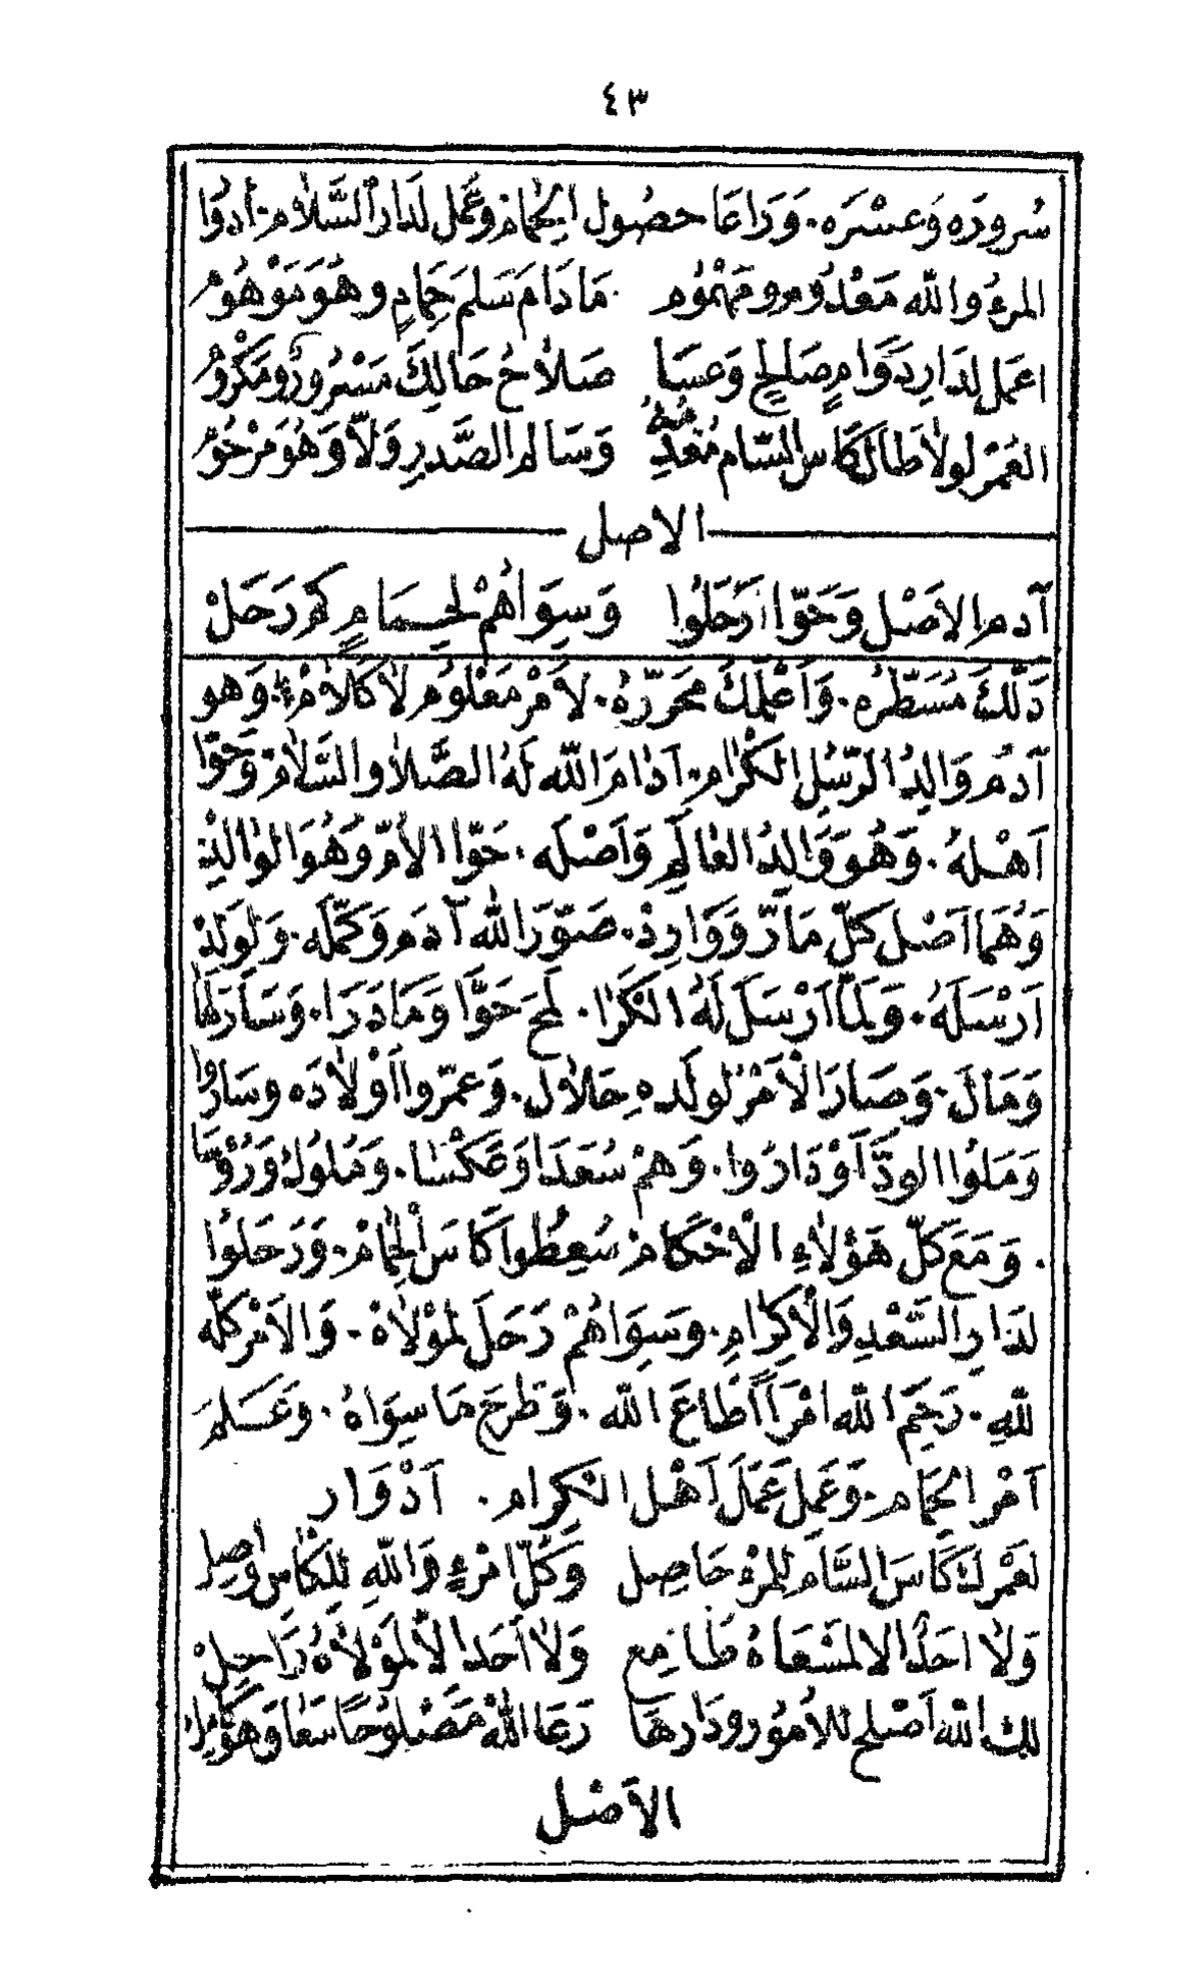 ٤٣
سُروده وَعسْره . وَرَاعَا حصُول الحِمَام وعَمل لدَار السَّلَام . أدوا
المرءُ والله مَعْدُوم ومَهْمُوم . مَا دَامَ سَلم حِمَامٍ وهُوَ مَوْهُومُ
اعمَل لدَارِ دَوَامٍ صَالحٍ وَعسَا صَلَاحُ حَالِكَ مَسْرُورٌ ومَكْرُومُ
العُمْرُ لولَا طَال كَاس السَّام مُعْدمُهُ وَسَالم الصَّدرِ وَلَّا وَهُوَ مَرْحُومُ
الاصل
آدم الاَصْل وَحَوّا رَحَلُوا وَسِوَاهُمْ لحِمَامٍ كم رَحَلْ
دَلَّكَ مُسَطّرُه . وَاَعْلَمَكَ مُحَرّرُهُ . لاَمْر مَعْلُوم لَا كَلَامْ . وَهو
آدمُ وَالِدُ الرّسُلِ الكْرَام . اَدَامَ اللّٰه لَهُ الصَّلَا والسَّلَام وَحَوّا
اَهْلهُ . وَهُوَ وَالِدُ العَالَمِ وَاَصْله . حَوّا الاُمّ وَهُوَ الوَالدْ
وَهُمَا اَصْل كلّ مَارّ وَوَارِدْ . صَوّرَ اللّٰه آدَم وَكَمّلَه . وَلولَدْ
اَرْسَلَهُ . وَلَمّا اَرْسَلَ لَهُ الكَرَا . لمحَ حَوَّا وَمَا دَرَا . وَسَارَ لهَا
وَمَالَ . وَصَارَ الْاَمْرُ لولَدهِ حَلَالْ . وَعمّروا اَوْلَادَه وسَارُوا
وَمَلوُا الودَّ اَوْ دَارُوا . وَهمْ سُعَدَا وَعَكْسَا . وَمُلُوك وَرُؤسَا
. وَمَعَ كلّ هَؤلَاءِ الْاَحْكَام سُعِطُوا كَاسَ الْحِمَامْ . وَرَحَلوُا
لدَارِ السَّعْدِ وَالْاِكرَامِ . وسِوَاهُمْ رَحَلَ لمَوْلَاهْ . وَالاَمْر كلّه
للهِ . رَحِمَ اللّٰه امْرَأً اَطَاعَ اللّٰه . وَطَرحَ مَا سِوَاهُ . وَعَلمَ
اَمْر الحِمَام . وَعَمِلَ عَمَلَ اَهْل الكِرَام . اَدْوَار
لعَمْركَ كَاسَ السَّامِ للمرْءِ حَاصِل وَكلّ امْرءٍ وَاللّٰهِ للكَاسِ وَاصِل
وَلَا اَحَدٌ الا لمَسْعَاهُ طَامِع وَلَا اَحَدا الاَّ لمَوْلَاهُ رَاحِلْ
لك اللّٰه اَصْلح للاُمُور ودَارهَا رَعَا اللّٰهُ مَصْلوُحًا سَعَا وَهوَ كَامِل
الاَصْل